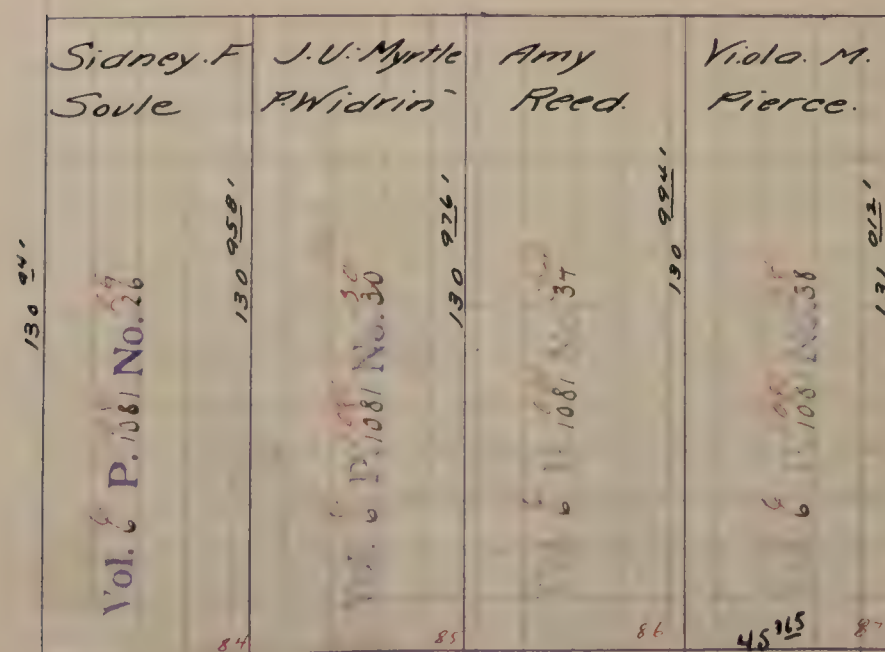 Sidney. F
Soule
J. U. Myrtle
P. Widrin
Amy
Reed.
Viola. M.
Pierce.
130 94'
130 958'
130 976'
130 994'
131 012'
Vol. 6 P. 1081 No. 26
6 P. 1081 No. 30
6 1081 34
6 108 No. 38
84
85
86
45 165
87